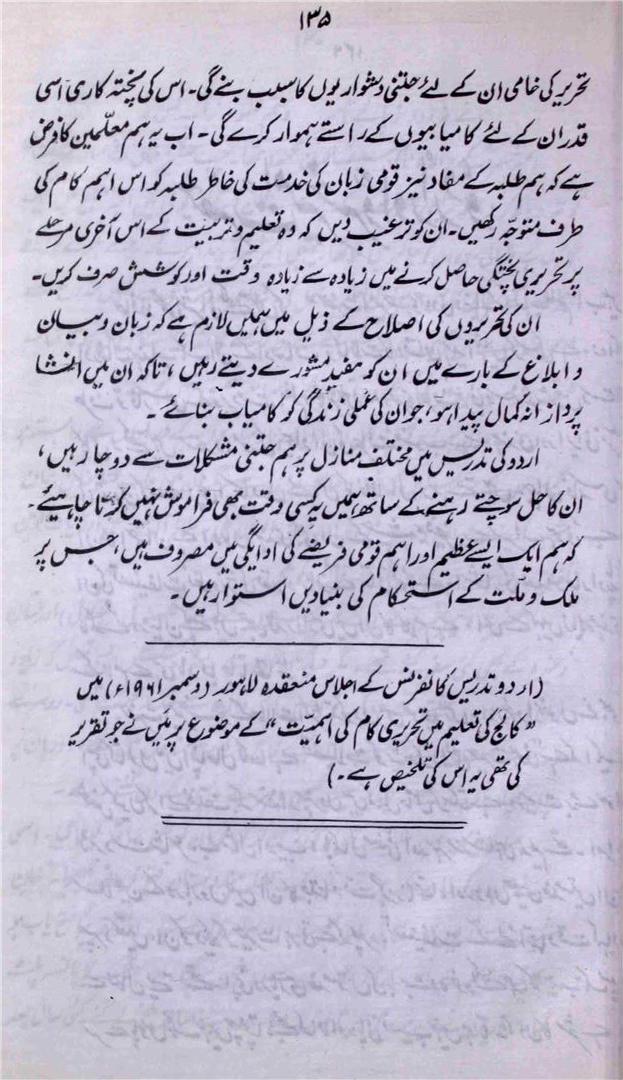 ۱۳۵
تحریر کی خامی ان کے لئے جتنی دشواریوں کا سبب بنے گی۔ اس کی پختہ کاری اسی
قدر ان کے لئے کامیابیوں کے راستے ہموار کرے گی۔ اب یہ ہم معلّمین کا فرض
ہے کہ ہم طلبہ کے مفاد نیز قومی زبان کی خدمت کی خاطر طلبہ کو اس اہم کام کی
طرف متوجّہ رکھیں۔ ان کو ترغیب دیں کہ وہ تعلیم و تربیّت کے اس آخری مرحلے
پر تحریری پختگی حاصل کرنے میں زیادہ سے زیادہ وقت اور کوشش صرف کریں۔
ان کی تحریروں کی اصلاح کے ذیل میں ہمیں لازم ہے کہ زبان و بیان
و ابلاغ کے بارے میں ان کو مفید مشورے دیتے رہیں، تاکہ ان میں انشا
پردازانہ کمال پیدا ہو، جو ان کی عملی زندگی کو کامیاب بنائے۔
اردو کی تدریس میں مختلف منازل پر ہم جتنی مشکلات سے دوچار ہیں،
ان کا حل سوچتے رہنے کے ساتھ ہمیں یہ کسی وقت بھی فراموش نہیں کرنا چاہیئے۔
کہ ہم ایک ایسے عظیم اور اہم قومی فریضے کی ادایگی میں مصروف ہیں، جس پر
ملک و ملّت کے استحکام کی بنیادیں استوار ہیں۔
(اردو تدریس کانفرنس کے اجلاس منعقدہ لاہور (دسمبر ۱۹۶۱ء) میں
“کالج کی تعلیم میں تحریری کام کی اہمیّت” کے موضوع پر میَں نے جو تقریر
کی تھی یہ اس کی تلخیص ہے۔)